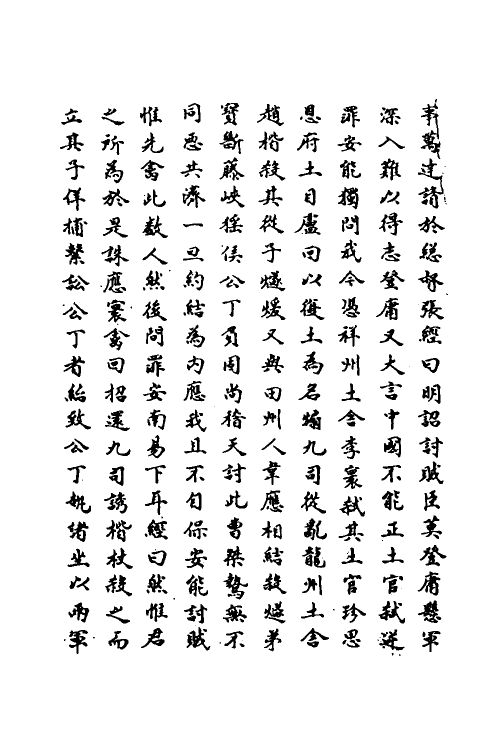 事萬達請於總督張經曰明詔討賊臣莫登庸懸軍
深入難以得志登庸又大言中國不能正土官弑逆
罪安能獨問我今憑祥州土舍李寰弑其土官珍思
恩府土目盧回以復土為名煽九司從亂龍州土舍
趙楷殺其從子燧煖又與田州人韋應相結殺燧弟
寶斷藤峽猺侯公丁負固尚稽天討此曹桀驁無不
同惡共濟一旦約結為内應我且不自保安能討賊
惟先禽此數人然後問罪安南易下耳經曰然惟君
之所為於是誅應寰禽回招還九司誘楷杖殺之而
立其子佯捕繫訟公丁者紿致公丁執緒坐以兩軍